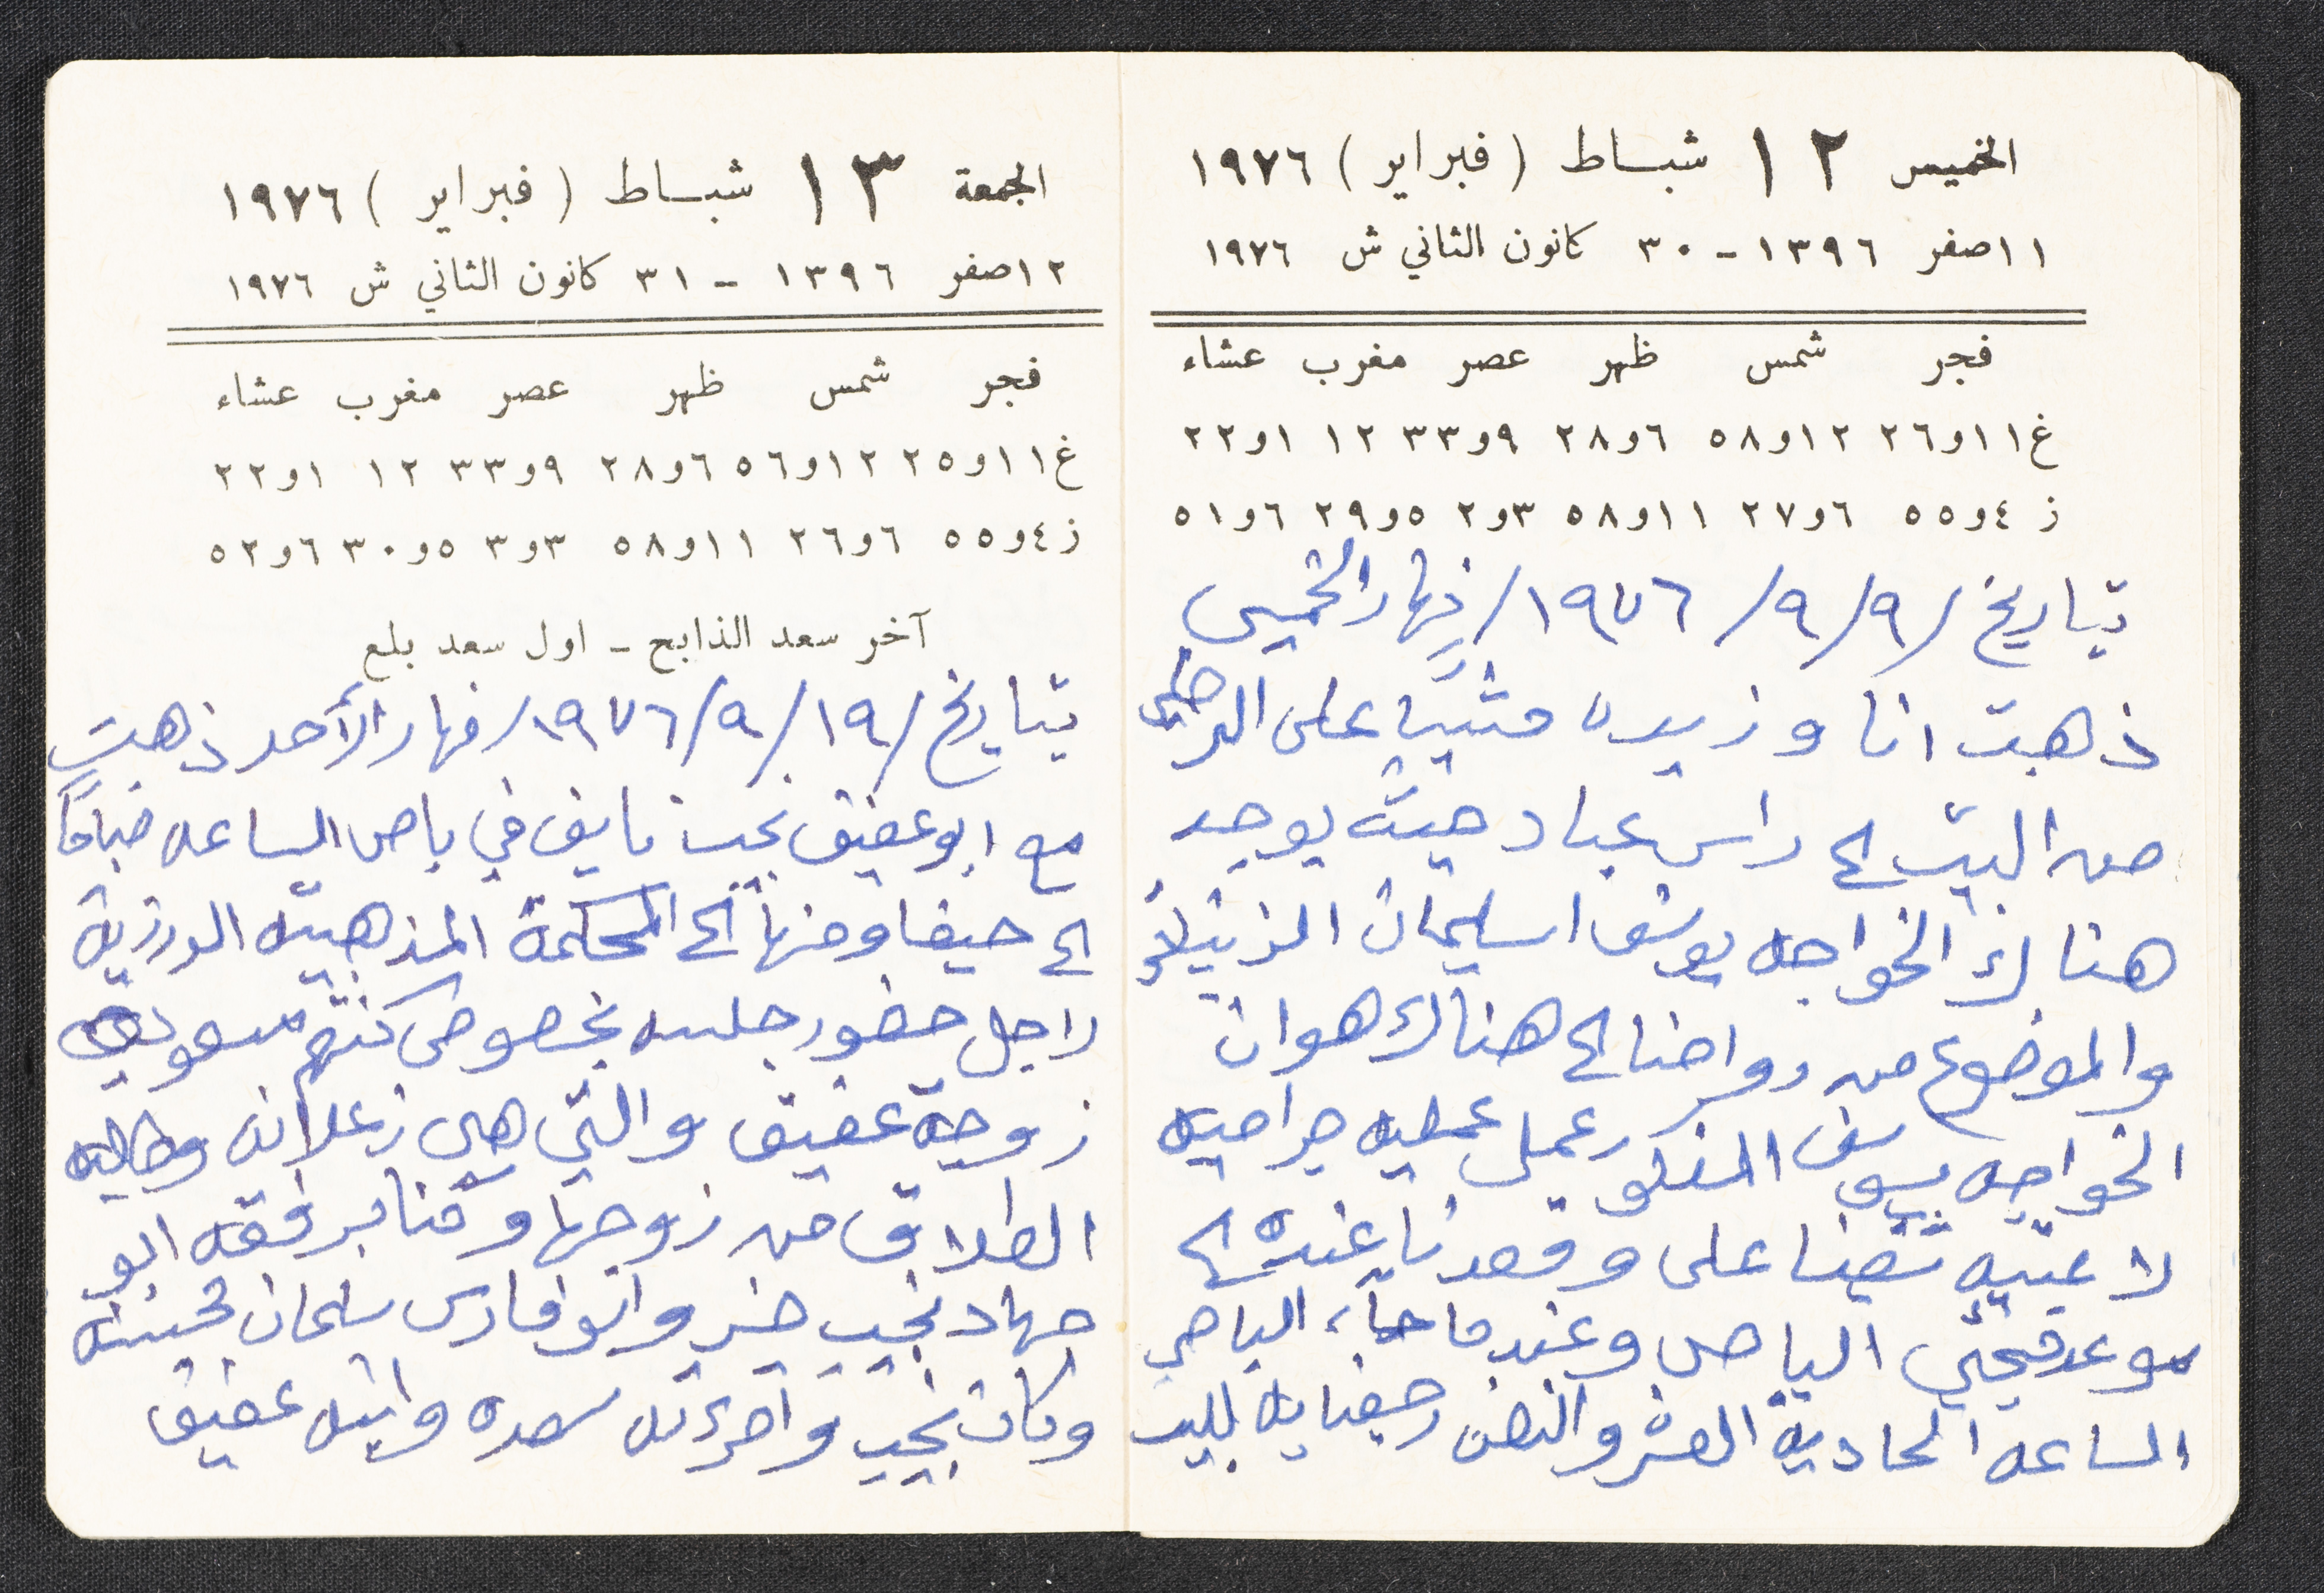 الخميس ١٢ شباط (فبراير) ١٩٧٦
١١ صفر ١٣٩٦ - ٣٠ كانون الثاني ش ١٩٧٦
فجر شمس ظهر عصر مغرب عشاء
غ ١١و٢٦ ١٢و٥٨ ٦و٢٨ ٩و٣٣ ١٢ ١و٢٢
ز ٤و٥٥ ٦و٢٧ ١١و٥٨ ٣و٢ ٥و٢٩ ٦و٥١
بتاريخ /٩/٩/ ١٩٧٦/ نهار الخميس
ذهبت انا وزيده مشيا على الرجلي
من البيت الى راس عباد حيث يوجد
هناك الخواجه يوسف اسليمان
والموضوع من رواحنا الى هناك هو ان
الخواجه يوسف المذكور عمل عمليه جراحيه
لا عينيه وقعدنا عنده الى
موعد مجيئ الباص وعندما جاء الباص
الساعه الحادية العشر والنصف رجعنا به للبيت
الجمعة ١٣ شباط (فبراير) ١٩٧٦
١٢ صفر ١٣٩٦ - ٣١ كانون الثاني ش ١٩٧٦
فجر شمس ظهر عصر مغرب عشاء
غ ١١و٢٥ ١٢و٥٦ ٦و٢٨ ٩و٣٣ ١٢ ١و٢٢
ز ٤و٥٥ ٦و٢٦ ١١و٥٨ ٣و٣ ٥و٣٠ ٦و٥٢
آخر سعد الذابح - اول سعد بلع
بتاريخ /١٩/٩/١٩٧٦/ نهار الأحد ذهبت
مع ابو عفيف نجيب نايف في باص الساعه صباحا
الى حيفا ومنها الى المحكمة المذهبيه الدرزية
لاجل حضور جلسه بخصوص كنتهم
زوجة عفيف والتي هي زعلانه وطالبه
الطلاق من زوجها وكنا برفقه ابو
جهاد نجيب خير وابو فارس سلمان
وكان نجيب وامرءته سعده وابنه عفيف